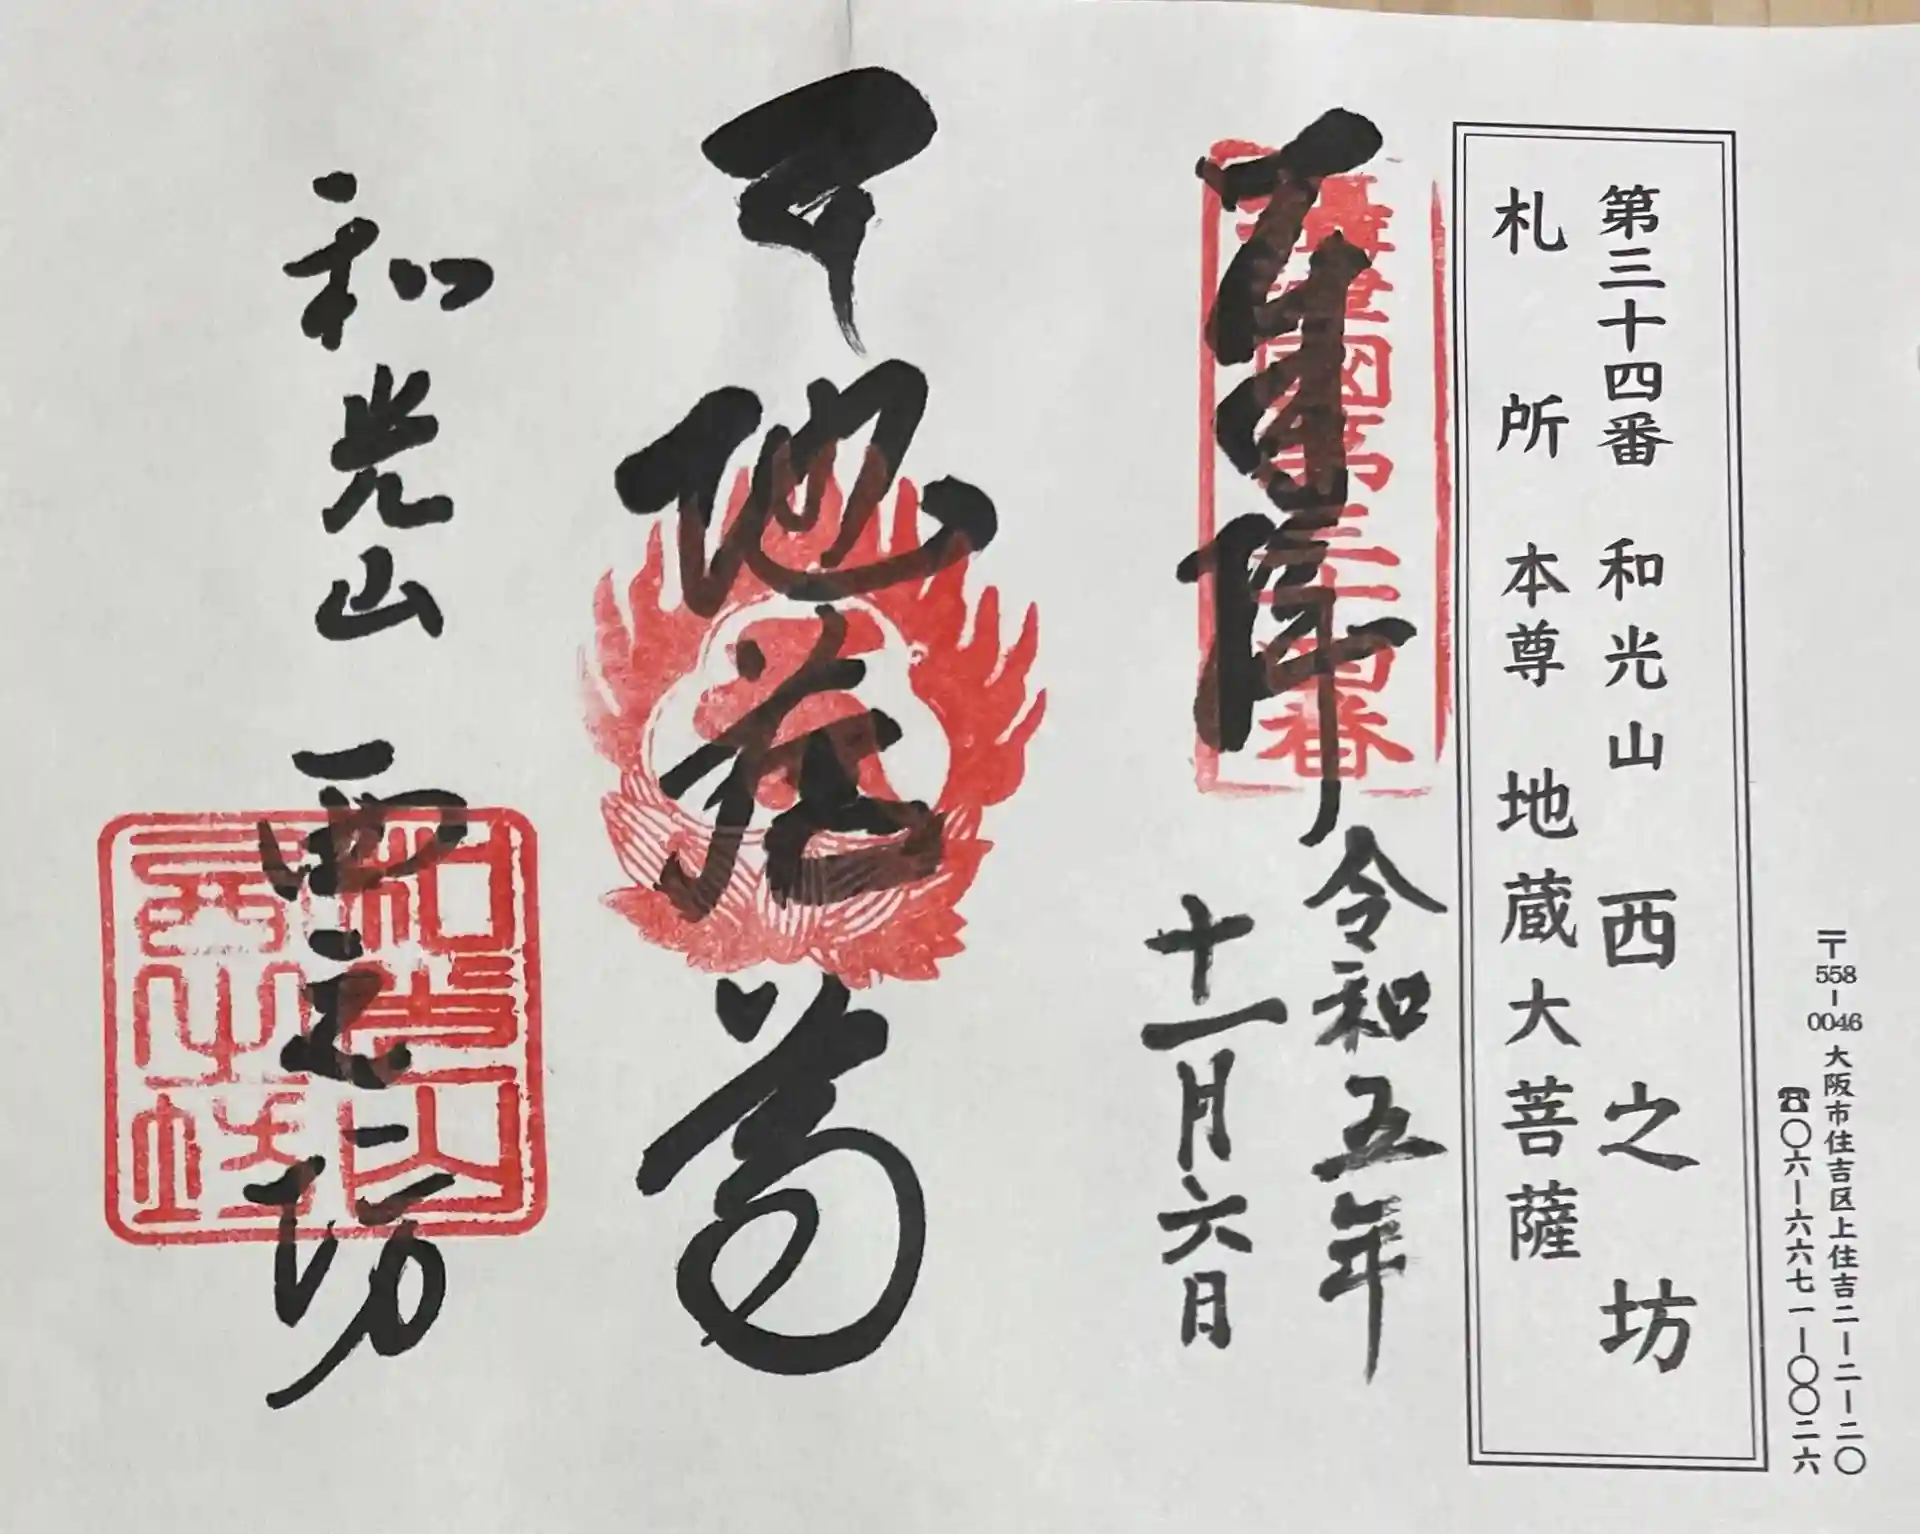 〒558-0046 大阪市住吉区上住吉二-二-二〇
☎〇六-六六七一-〇〇二六
第三十四番 和光山 西之坊
札所 本尊 地蔵大菩薩
奉拝
摂津國第三十四番
令和五年
十一月六日
地蔵尊
和光山 西之坊
和光山
西之坊